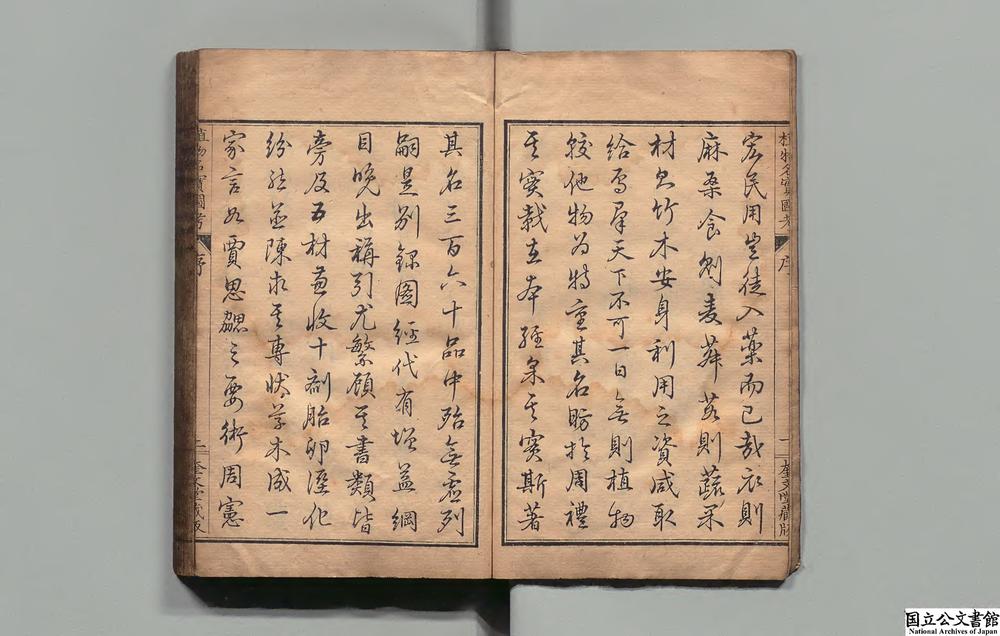 宏民用豈徒入藥而已哉衣則
麻桑食則麦菽茹則蔬果
材必竹木安身利用之資咸取
給焉羣天下不可一日無則植物
較他物为特重其名昉於周禮
其實載在本經采其實斯著
其名三百六十品中殆無虛列
嗣是别錄圖經代有增益綱
目晚出稱引尤繁顧其書類皆
旁及五材兼收十劑胎卵溼化
紛然並陳求其專狀草木成一
家言如賈思勰之要術周憲
植物名實圖考
序
一
奎文堂藏版
植物名實圖考
序
二
奎文堂藏版
国立公文書館
National Archives of Japan